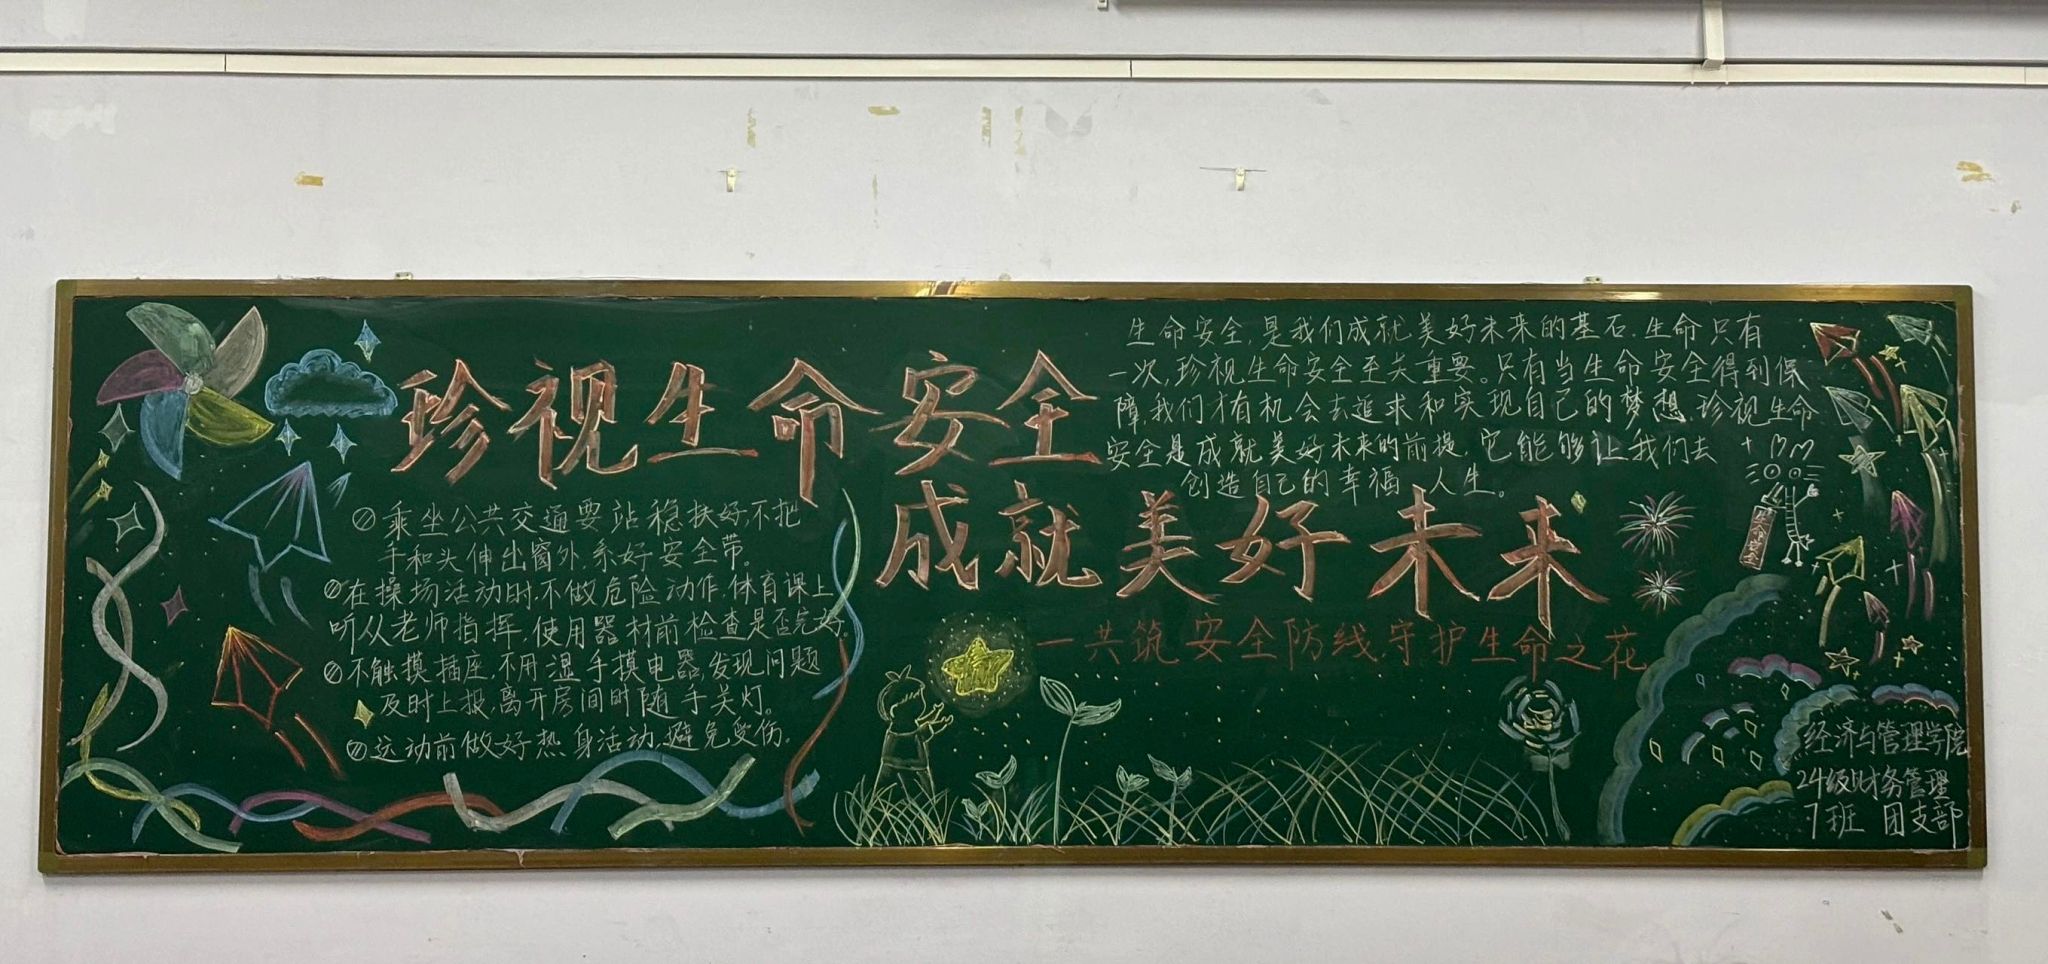 珍视生命安全
成就美好未来
一共筑安全防线,守护生命之花
生命安全,是我们成就美好未来的基石.生命只有
一次,珍视生命安全至关重要。只有当生命安全得到保
障,我们才有机会去追求和实现自己的梦想.珍视生命
安全是成就美好未来的前提.它能够让我们去
创造自己的幸福人生。
乘坐公共交通要站稳扶好,不把
手和头伸出窗外.系好安全带。
在操场活动时.不做危险动作.体育课上
听从老师指挥.使用器材前检查是否完好.
不触摸插座.不用湿手摸电器,发现问题
及时上报,离开房间时随手关灯。
运动前做好热身活动.避免受伤.
生命安全
经济与管理学院
24级财务管理
7班 团支部